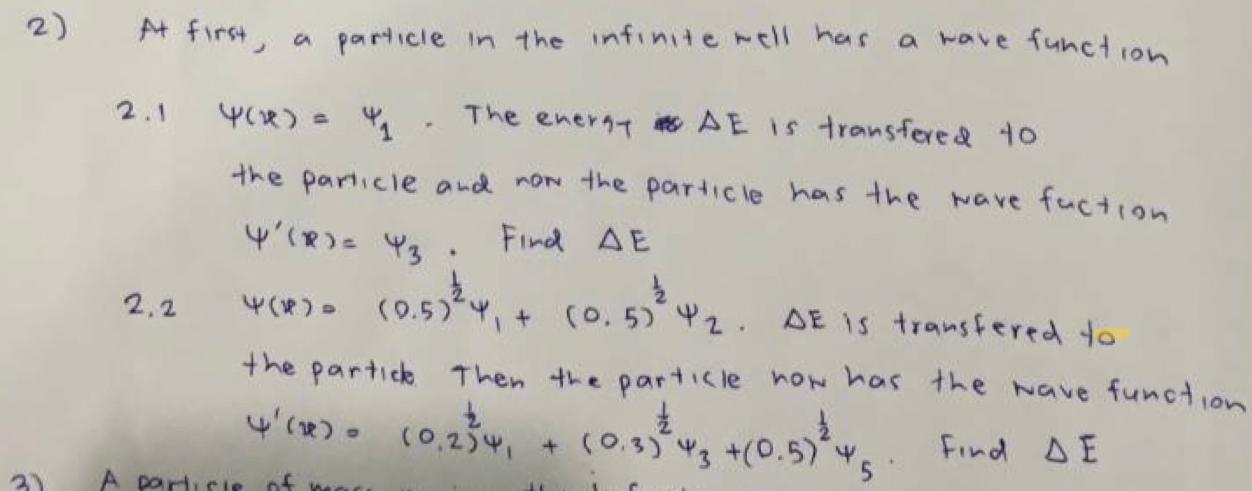 2) At first, a particle in the infinite well has a wave function
2.1 Ψ(x) = Ψ₁ . The energy ΔE is transfered to
the particle and now the particle has the wave fuction
Ψ'(x) = Ψ₃ . Find ΔE
2.2 Ψ(x) = (0.5)^½ Ψ₁ + (0.5)^½ Ψ₂ . ΔE is transfered to
the particle Then the particle now has the wave function
Ψ'(x) = (0.2)^½ Ψ₁ + (0.3)^½ Ψ₃ + (0.5)^½ Ψ₅ . Find ΔE
3) A particle of